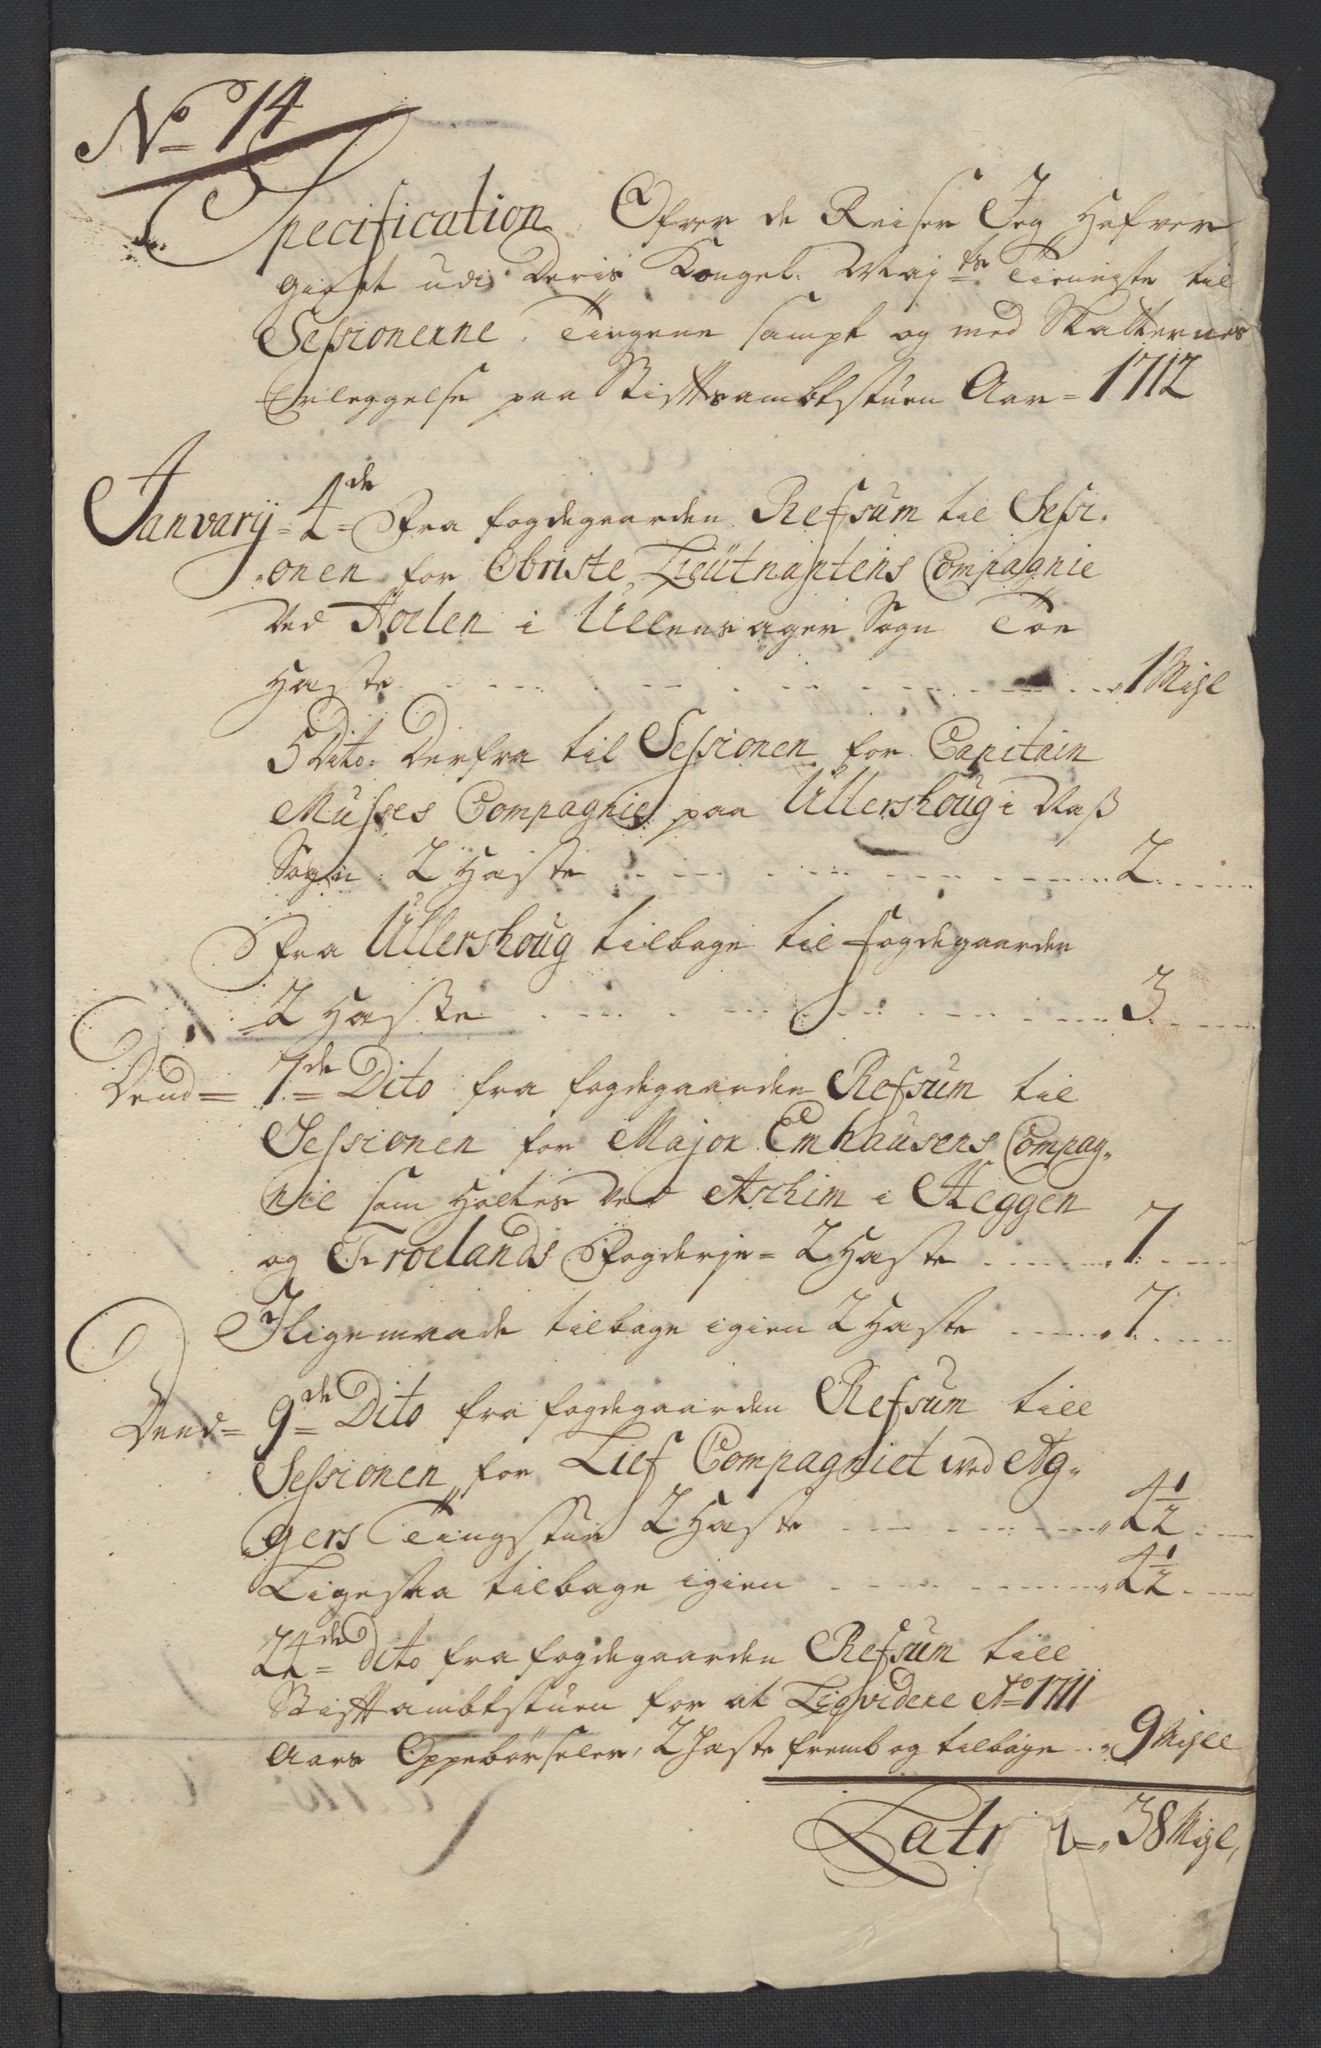 No 14
Specification Ofver de Reiser Jeg Hafver
giort udi Deris Kongel. Mayts Tienniste til
Sessionerne, Tingene sampt og med Skatternes
Erleggelse paa Stifftsambtstuen Aar = 1712
Janvarij = 4de = Fra fogdegaarden Refsum til Sessi-
onen for Obriste Lieütnantens Compagnie
Ved Hoelen i Ullensager Sogn Toe
Heste 1 Mijl
5 Dito: Derfra til Sessionen for Capitain
Musses Compagnie paa Ullershoug i Naß
Sogn: 2 Heste 2
Fra Ullershoug tilbage til fogdegaarden
2 Heste 3
Dend = 7de Dito fra fogdegaarden Refsum til
Sessionen for Major Emhausens Compag-
nie som Holtes Ved Aschim i Heggen
og Froelands Fogderje = 2 Heste 7
Iligemaade tilbage igien 2 Heste 7
Dend = 9de Dito fra fogdegaarden Refsum till
Sessionen for Lief Compagniet ved Ag-
gers Tingstue 2 Heste 4½
Ligesaa tilbage igien 4½
24de dito fra fogdegaarden Refsum till
Stifftambtstuen for at Liqvidere Ao 1711
Aars Oppebørseler, 2 Heste fremb og tilbage 9 Mijll
Latr = 38 Mijl,